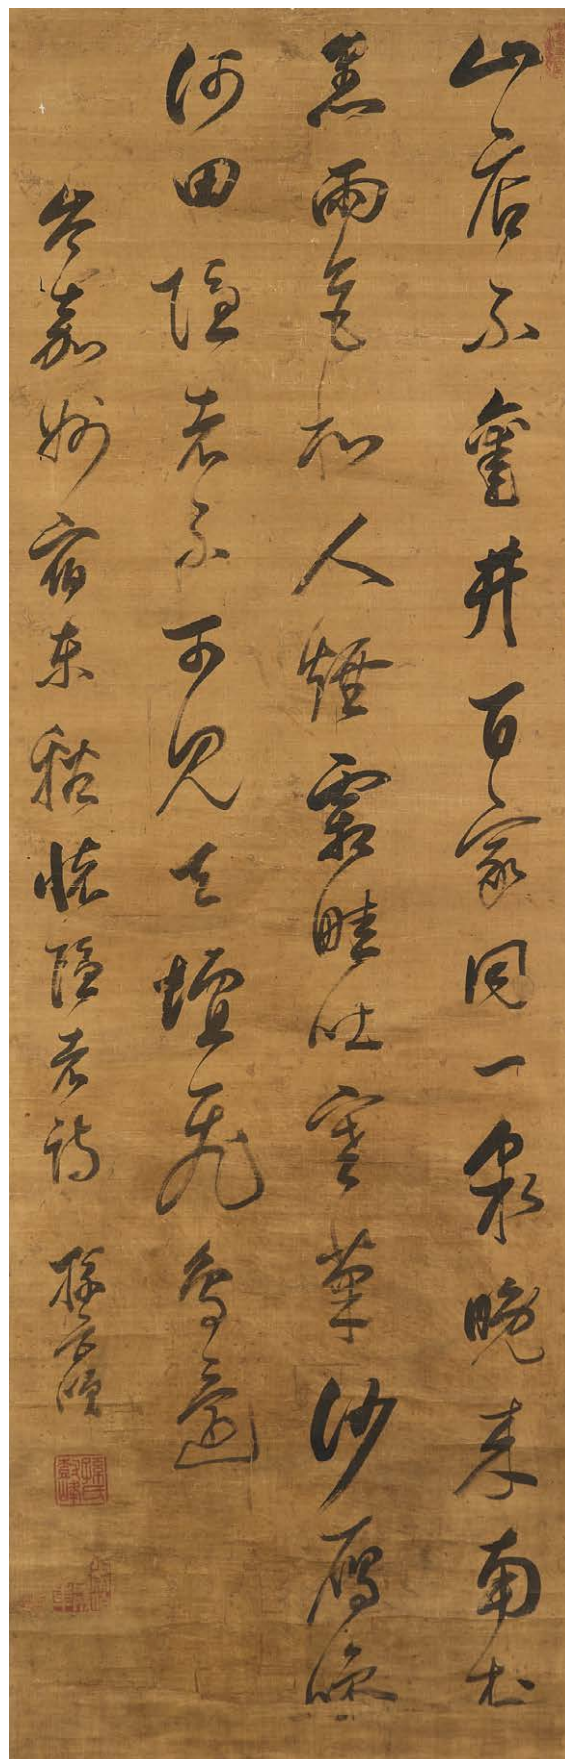 山店不鑿井百家同一泉晚來南村
黑雨色和人煙霜畦吐寒菜沙雁噪
河田隱者不可見天壇飛鳥邊
岑嘉州宿東谿懷隱者詩 孫岳頒
孫氏樹峰